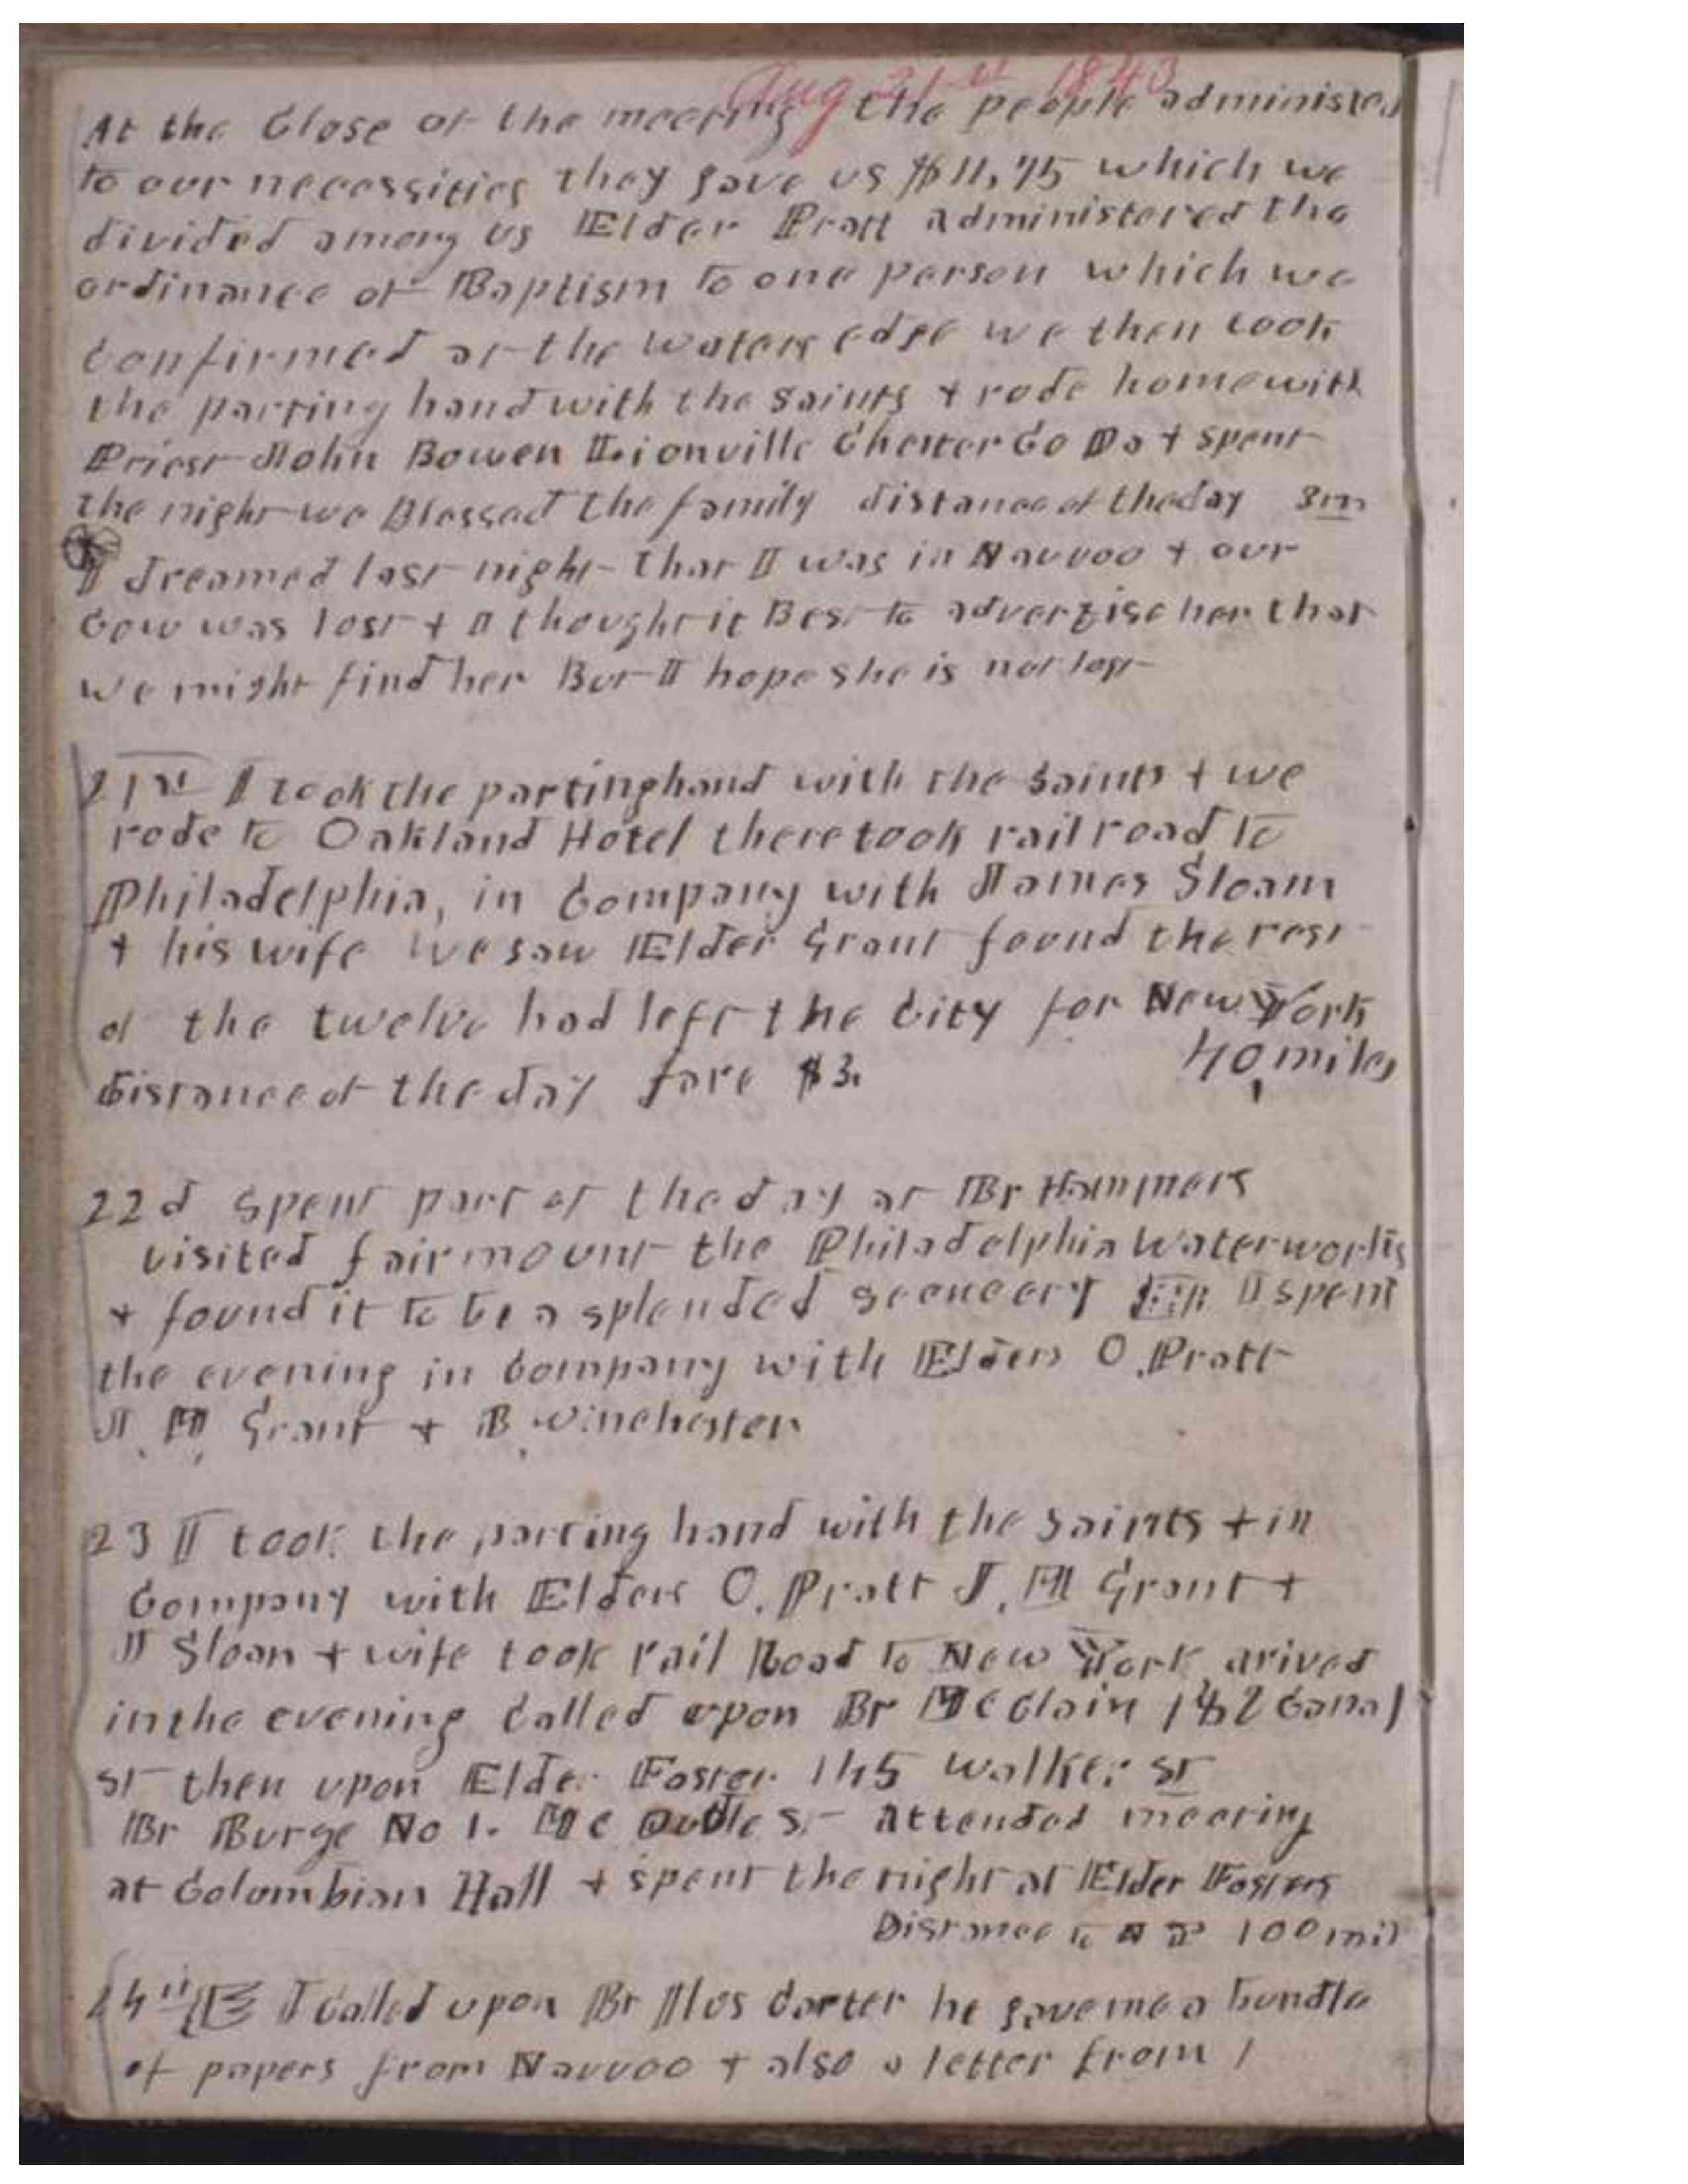 Aug 21st 1843
At the Close of the meeting the people administed
to our necessities they gave us $11,75 which we
divided among us Elder Pratt administered the
ordinance of Baptism to one person which we
Confirmed at the waters edge we then took
the parting hand with the Saints + rode home with
Priest John Bowen Lionville Chester Co Pa + spent
the night we Blessed the family distance of the day 8 m
I dreamed last night that I was in Nauvoo + our
Cow was lost + I thought it Best to advertise her that
we might find her But I hope she is not lost
21st I took the parting hand with the Saints + we
rode to Oakland Hotel there took rail road to
Philadelphia, in Company with James Sloam
+ his wife we saw Elder Grant found the rest
of the twelve had left the City for New York
distance of the day fare $3. 40 miles
22d Spent part of the day at Br Hammers
visited fairmount the Philadelphia Waterworks
+ found it to be a splended sceneery I spent
the evening in Company with Elders O. Pratt
J. M. Grant + B. Winchester
23 I took the parting hand with the Saints + in
Company with Elders O. Pratt J. M Grant +
J Sloan + wife took rail Road to New York arived
in the evening Called upon Br McClain 182 Canal
st then upon Elder Foster 145 Walker St
Br Burge No 1. Mc St Attended meeting
at Columbian Hall + spent the night at Elder Fosters
Distance to N Y 100 mil
24th I Called upon Br Carter he gave me a bundle
of papers from Nauvoo + also a letter from